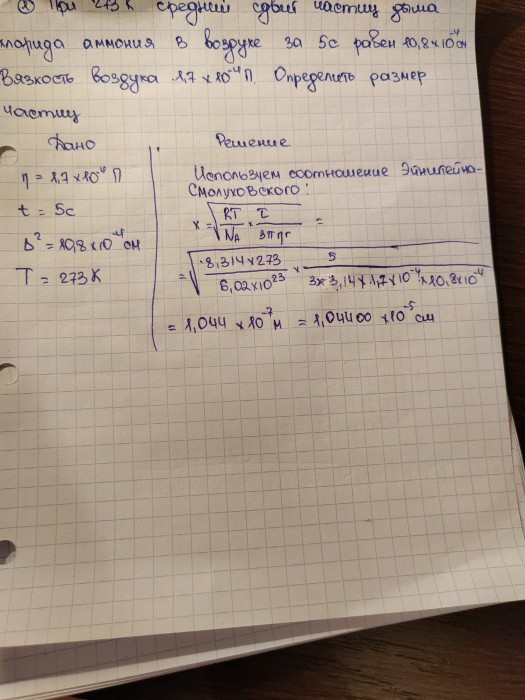 ② При 273 К средний сдвиг частиц дыма
хлорида аммония в воздухе за 5с равен 10,8x10⁻⁴ см
Вязкость воздуха 1,7x10⁻⁴ П. Определить размер
частиц
Дано
Решение
η = 1,7x10⁻⁴ П
t = 5с
Δ² = 10,8x10⁻⁴ см
T = 273 К
Используем соотношение Эйнштейна-
Смолуховского:
x = √(RT/N_A x τ/3πηr) =
= √(8,314x273/6,02x10²³ x 5/3x3,14x1,7x10⁻⁴x10,8x10⁻⁴)
= 1,044 x10⁻⁷ м = 1,04400 x10⁻⁵ см